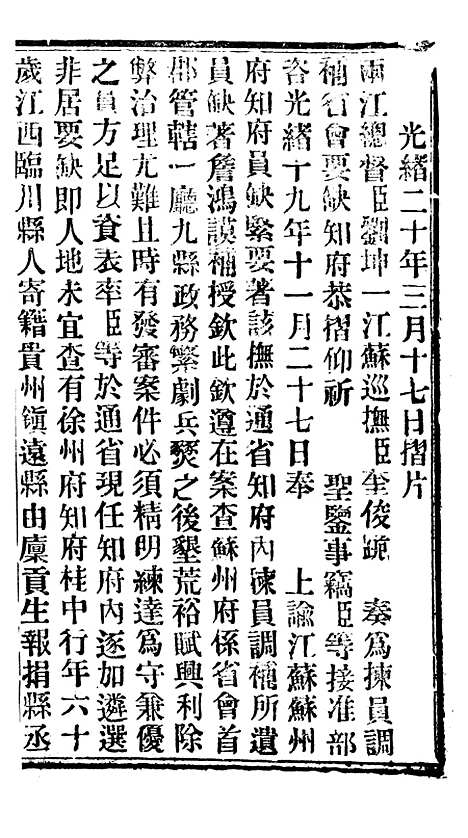 光緒二十年三月十七日摺片
兩江總督臣劉坤一江蘇巡撫臣奎俊跪 奏爲揀員調
補省會要缺知府恭摺仰祈 聖鑒事竊臣等接准部
咨光緒十九年十一月二十七日奉 上諭江蘇蘇州
府知府員缺緊要著該撫於通省知府內揀員調補所遺
員缺著詹鴻謨補授欽此欽遵在案查蘇州府係省會首
郡管轄一廳九縣政務繁劇兵燹之後墾荒裕賦興利除
弊治理尤難且時有發審案件必須精明練達爲守兼優
之員方足以資表率臣等於通省現任知府內逐加遴選
非居要缺即人地未宜查有徐州府知府桂中行年六十
歲江西臨川縣人寄籍貴州鎭遠縣由廩貢生報捐縣丞